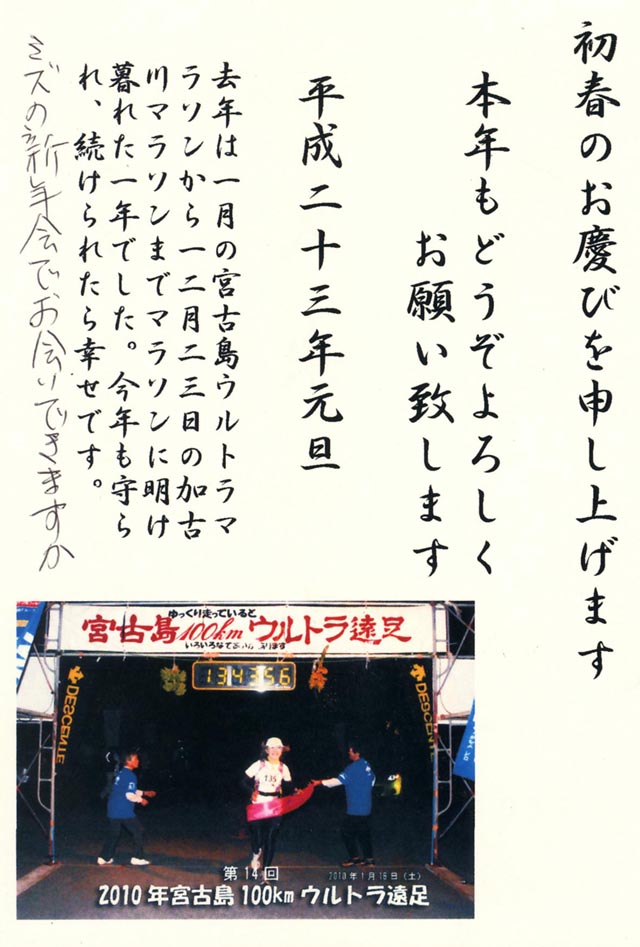 初春のお慶びを申し上げます
本年もどうぞよろしく
お願い致します
平成二十三年元旦
去年は一月の宮古島ウルトラマ
ラソンから一二月二三日の加古
川マラソンまでマラソンに明け
暮れた一年でした。今年も守ら
れ、続けられたら幸せです。
ミズの新年会でお会いできますか
ゆっくり走っていると
宮古島100kmウルトラ遠足
いろいろな
134356
DESCENTE
DESCENTE
735
第14回
2010年1月16日(土)
2010年宮古島100kmウルトラ遠足